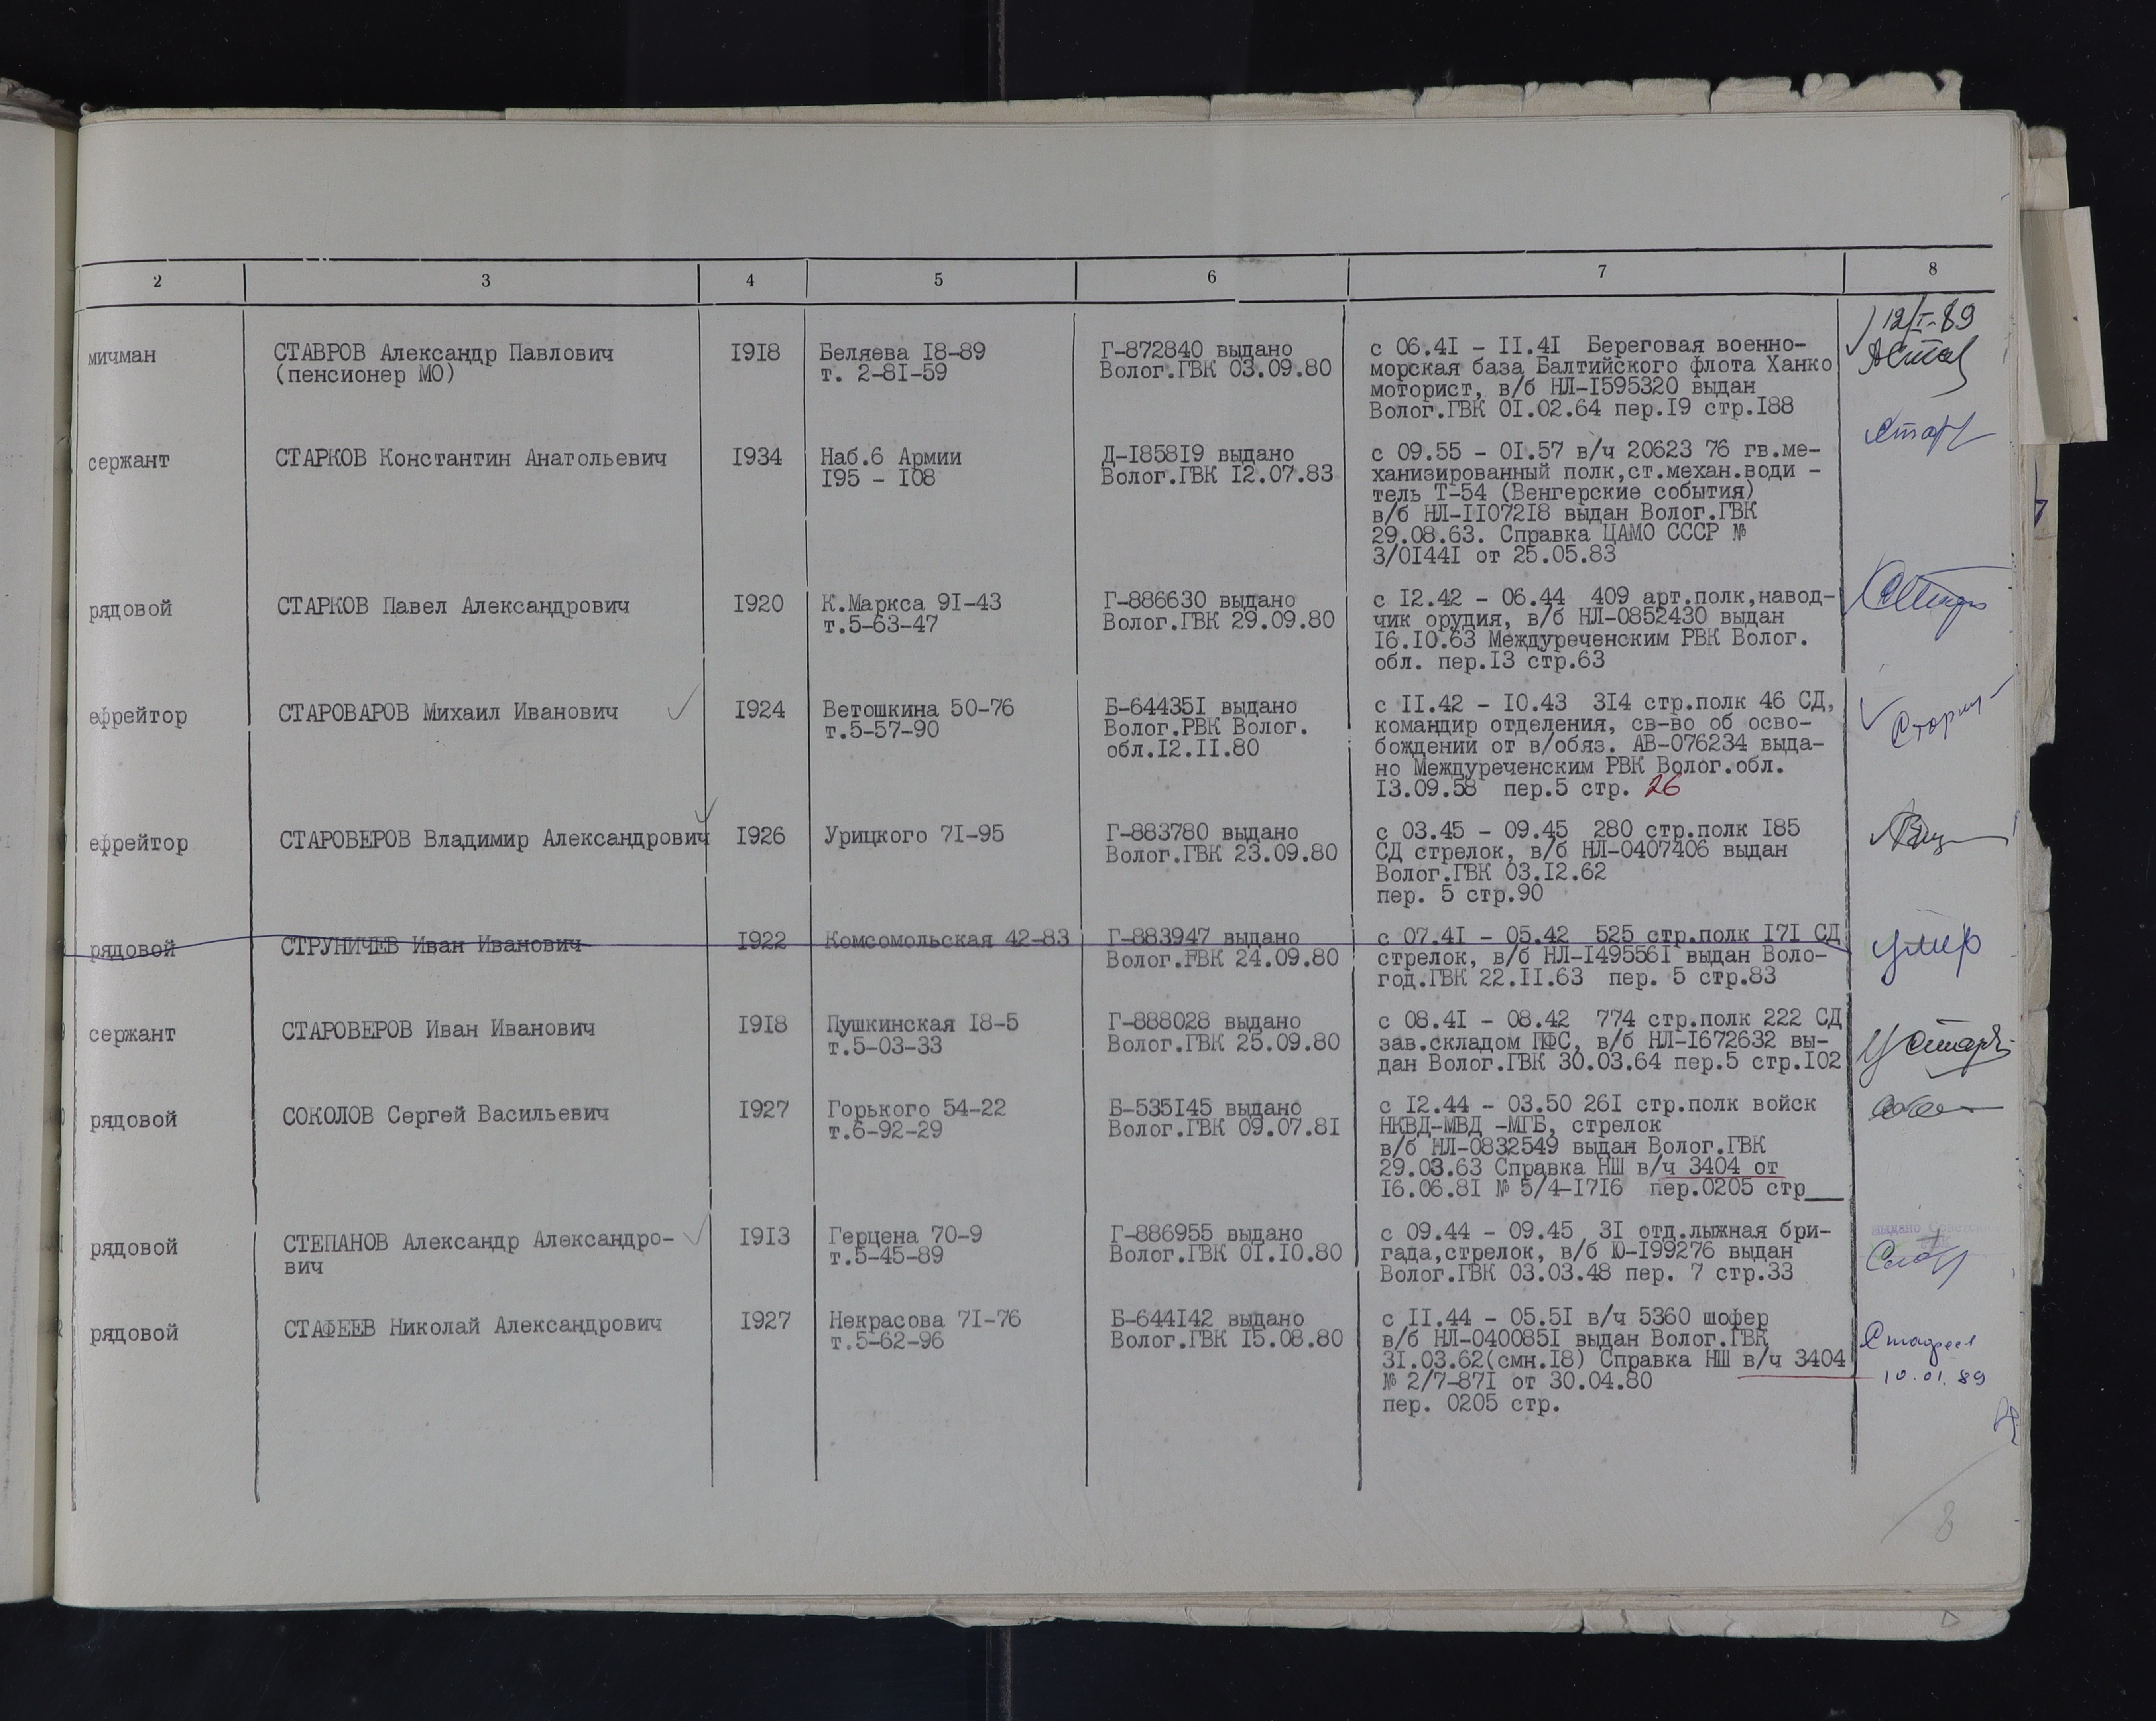 2 3 4 5 6 7 8
12/I-89
мичман СТАВРОВ Александр Павлович 1918 Беляева 18-89 Г-872840 выдано с 06.41 - 11.41 Береговая военно-
(пенсионер МО) т. 2-81-59 Волог.ГВК 03.09.80 морская база Балтийского флота Ханко
моторист, в/б НЛ-1595320 выдан
Волог.ГВК 01.02.64 пер.19 стр.188
сержант СТАРКОВ Константин Анатольевич 1934 Наб.6 Армии Д-185819 выдано с 09.55 - 01.57 в/ч 20623 76 гв.ме-
195 - 108 Волог.ГВК 12.07.83 ханизированный полк,ст.механ.води -
тель Т-54 (Венгерские события)
в/б НЛ-1107218 выдан Волог.ГВК
29.08.63. Справка ЦАМО СССР №
3/01441 от 25.05.83
рядовой СТАРКОВ Павел Александрович 1920 К.Маркса 91-43 Г-886630 выдано с 12.42 - 06.44 409 арт.полк,навод-
т.5-63-47 Волог.ГВК 29.09.80 чик орудия, в/б НЛ-0852430 выдан
16.10.63 Междуреченским РВК Волог.
обл. пер.13 стр.63
ефрейтор СТАРОВАРОВ Михаил Иванович 1924 Ветошкина 50-76 Б-644351 выдано с 11.42 - 10.43 314 стр.полк 46 СД,
т.5-57-90 Волог.РВК Волог. командир отделения, св-во об осво-
обл.12.11.80 бождении от в/обяз. АВ-076234 выда-
но Междуреченским РВК Волог.обл.
13.09.58 пер.5 стр. 26
ефрейтор СТАРОВЕРОВ Владимир Александрович 1926 Урицкого 71-95 Г-883780 выдано с 03.45 - 09.45 280 стр.полк 185
Волог.ГВК 23.09.80 СД стрелок, в/б НЛ-0407406 выдан
Волог.ГВК 03.12.62
пер. 5 стр.90
рядовой СТРУНИЧЕВ Иван Иванович 1922 Комсомольская 42-83 Г-883947 выдано с 07.41 - 05.42 525 стр.полк 171 СД умер
Волог.ГВК 24.09.80 стрелок, в/б НЛ-1495561 выдан Воло-
год.ГВК 22.11.63 пер. 5 стр.83
сержант СТАРОВЕРОВ Иван Иванович 1918 Пушкинская 18-5 Г-888028 выдано с 08.41 - 08.42 774 стр.полк 222 СД
т.5-03-33 Волог.ГВК 25.09.80 зав.складом ПФС, в/б НЛ-1672632 вы-
дан Волог.ГВК 30.03.64 пер.5 стр.102
рядовой СОКОЛОВ Сергей Васильевич 1927 Горького 54-22 Б-535145 выдано с 12.44 - 03.50 261 стр.полк войск
т.6-92-29 Волог.ГВК 09.07.81 НКВД-МВД -МГБ, стрелок
в/б НЛ-0832549 выдан Волог.ГВК
29.03.63 Справка НШ в/ч 3404 от
16.06.81 № 5/4-1716 пер.0205 стр___
рядовой СТЕПАНОВ Александр Александро- 1913 Герцена 70-9 Г-886955 выдано с 09.44 - 09.45 31 отд.лыжная бри-
вич т.5-45-89 Волог.ГВК 01.10.80 гада,стрелок, в/б Ю-199276 выдан
Волог.ГВК 03.03.48 пер. 7 стр.33
рядовой СТАФЕЕВ Николай Александрович 1927 Некрасова 71-76 Б-644142 выдано с 11.44 - 05.51 в/ч 5360 шофер
т.5-62-96 Волог.ГВК 15.08.80 в/б НЛ-0400851 выдан Волог.ГВК
31.03.62(смн.18) Справка НШ в/ч 3404
№ 2/7-871 от 30.04.80 10.01.89
пер. 0205 стр.
8